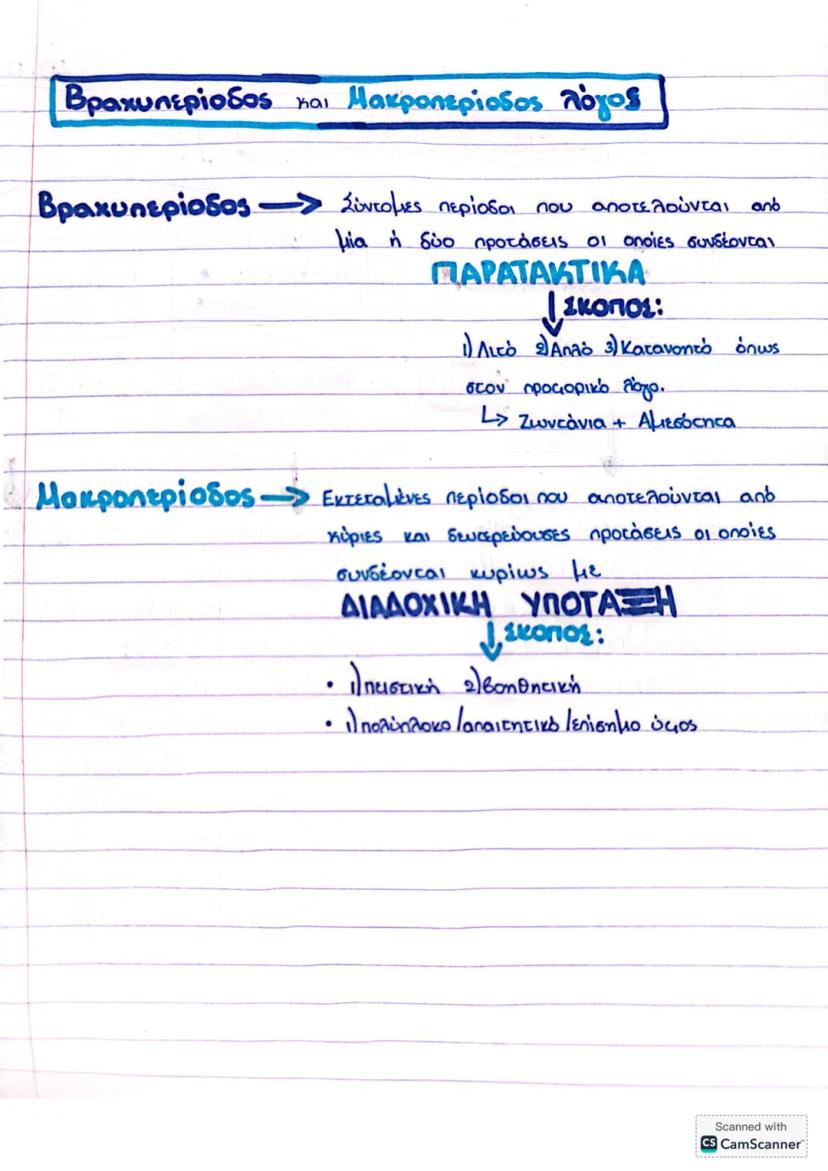 Βραχυπερίοδος και Μακροπερίοδος λόγος
Βραχυπερίοδος → Σύντομες περίοδοι που αποτελούνται από
μία ή δύο προτάσεις οι οποίες συνδέονται
ΠΑΡΑΤΑΚΤΙΚΑ
↓ ΣΚΟΠΟΣ:
1) Λιτό 2) Απλό 3) Κατανοητό όπως
στον προφορικό λόγο.
↳ Ζωντάνια + Αμεσότητα
Μακροπερίοδος → Εκτεταμένες περίοδοι που αποτελούνται από
κύριες και δευτερεύουσες προτάσεις οι οποίες
συνδέονται κυρίως με
ΔΙΑΔΟΧΙΚΗ ΥΠΟΤΑΞΗ
↓ ΣΚΟΠΟΣ:
• 1) πειστική 2) βοηθητική
• 1) πολύπλοκο/απαιτητικό/επίσημο ύφος
Scanned with
CS CamScanner